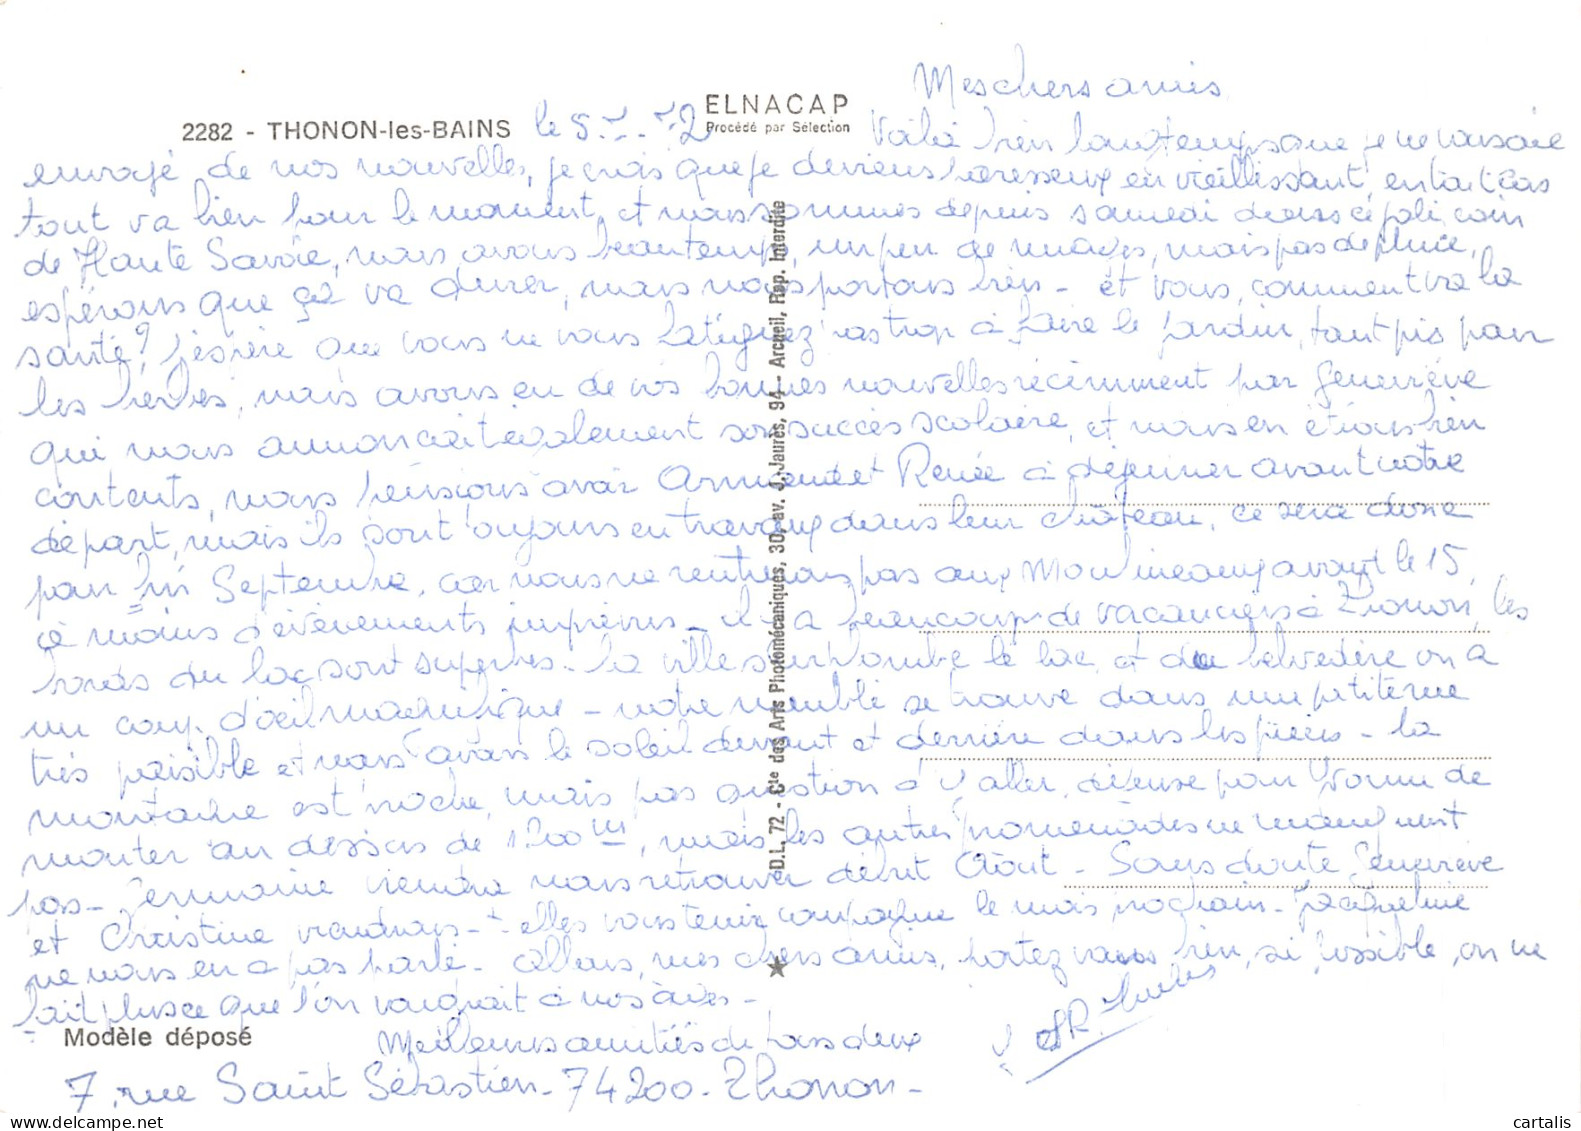 Mes chers amis
ELNACAP
Procédé par Sélection
2282 - THONON-les-BAINS
le 5
Voilà bien longtemps que je ne vous ai
envoyé de nos nouvelles, je crois que je deviens paresseux en vieillissant, en tout cas
tout va bien pour le moment, et nous sommes depuis samedi dans ce joli coin
de Haute Savoie, nous avons beau temps, un peu de nuages, mais pas de pluie,
espérons que ça va durer, nous nous portons bien - et vous, comment va la
santé? j'espère que vous ne vous fatiguez pas trop à faire le jardin, tant pis pour
les herbes, nous avons eu de vos bonnes nouvelles récemment par Geneviève
qui nous annonçait également son succès scolaire, et nous en étions bien
contents, nous pensions avoir Armand et Renée à déjeuner avant notre
départ, mais ils sont toujours en travaux dans leur château, ce sera donc
pour fin Septembre, car nous ne rentrerons pas aux Moulineaux avant le 15,
à moins d'évènements imprévus - il y a beaucoup de vacanciers à Thonon, les
bords du lac sont superbes - la ville surplombe le lac et du belvédère on a
un coup d'oeil magnifique - notre meublé se trouve dans une petite rue
très paisible et nous avons le soleil devant et derrière dans les pièces - la
montagne est proche, mais pas question d'y aller, défense pour Yvonne de
monter au dessus de 1200 m, mais les autres promenades ne manquent
pas - Germaine viendra nous retrouver début Août - Sans doute Geneviève
et Christine viendront - elles vous tenir compagnie le mois prochain - Jacqueline
ne nous en a pas parlé - Allons, mes chers amis, portez vous bien, si possible, on ne
fait plus ce que l'on voudrait à nos âges -
Modèle déposé
Meilleures amitiés de tous deux
7, rue Saint Sébastien - 74200 - Thonon -
D.L. 72 - Cie des Arts Photomécaniques, 30, av. J.-Jaurès, 94 - Arcueil, Rep. Interdite
cartalis